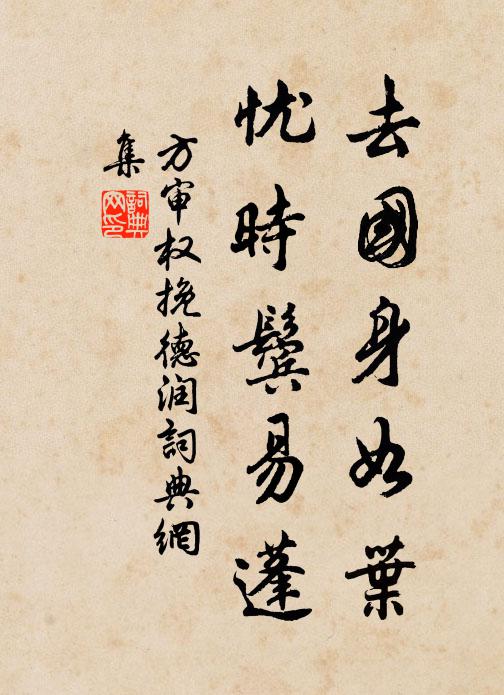 去國身如葉
忧時鬓易蓬
方审权挽德润詞典網
集
詞典
网印